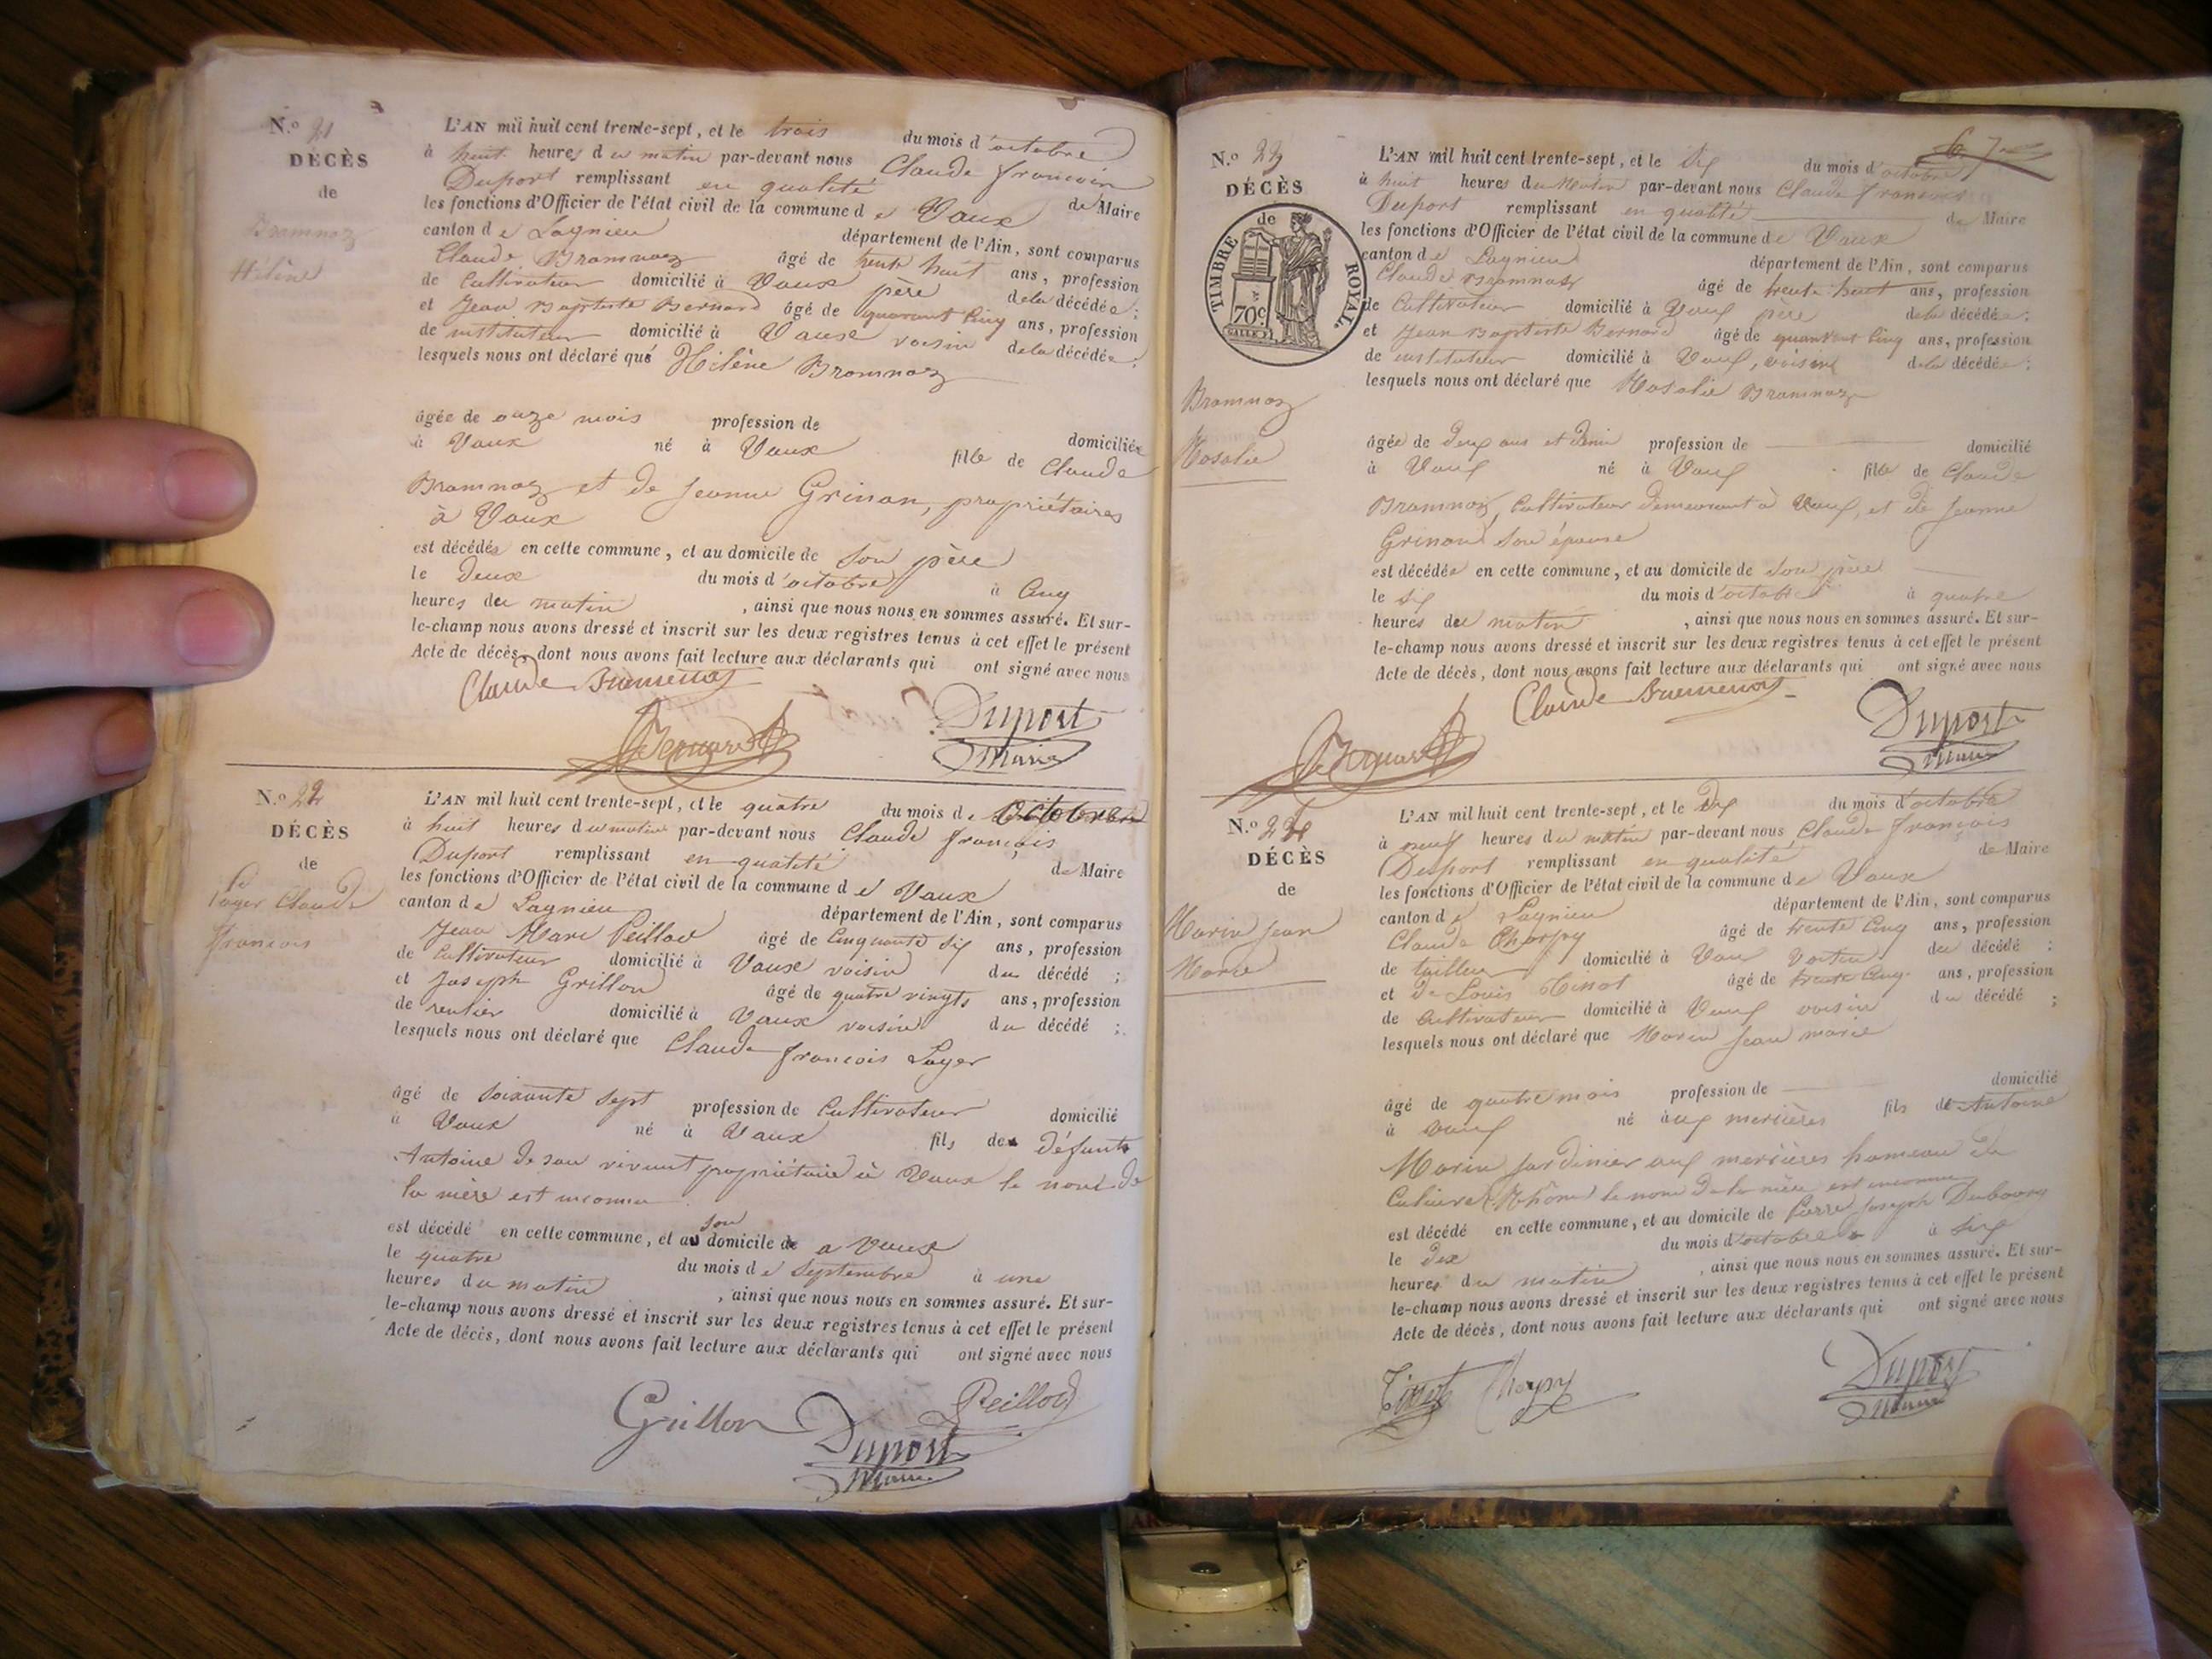 N.º 21
DÉCÈS
de
Bramnaz
Hélène
L'AN mil huit cent trente-sept, et le trois du mois d'octobre
à huit heures du matin par-devant nous Claude françois
Duport remplissant en qualité de Maire
les fonctions d'Officier de l'état civil de la commune de Vaux
canton de Lagnieu département de l'Ain, sont comparus
Claude Bramnaz âgé de trente huit ans, profession
de Cultivateur domicilié à Vaux père de la décédée;
et Jean Baptiste Bernard âgé de quarant Cinq ans, profession
de instituteur domicilié à Vaux voisin de la décédée;
lesquels nous ont déclaré que Hélène Bramnaz
âgée de onze mois profession de domiciliée
à Vaux né à Vaux fille de Claude
Bramnaz et de Jeanne Grinan, propriétaires
à Vaux
est décédée en cette commune, et au domicile de son père
le deux du mois d'octobre à Cinq
heures du matin, ainsi que nous nous en sommes assuré. Et sur-
le-champ nous avons dressé et inscrit sur les deux registres tenus à cet effet le présent
Acte de décès, dont nous avons fait lecture aux déclarants qui ont signé avec nous
Claude
Bernard
Duport
Maire
N.º 22
DÉCÈS
de
Layer Claude
françois
L'AN mil huit cent trente-sept, et le quatre du mois de Octobre
à huit heures du matin par-devant nous Claude françois
Duport remplissant en qualité de Maire
les fonctions d'Officier de l'état civil de la commune de Vaux
canton de Lagnieu département de l'Ain, sont comparus
Jean Marc Peillod âgé de Cinquante six ans, profession
de Cultivateur domicilié à Vaux voisin du décédé;
et Joseph Grillon âgé de quatre vingts ans, profession
de rentier domicilié à Vaux voisin du décédé;
lesquels nous ont déclaré que Claude françois Layer
âgé de Soixante sept profession de Cultivateur domicilié
à Vaux né à Vaux fils de défunt
Antoine de son vivant propriétaire à Vaux le nom de
la mère est inconnu
est décédé en cette commune, et au son domicile de a Vaux
le quatre du mois de Septembre à une
heures du matin, ainsi que nous nous en sommes assuré. Et sur-
le-champ nous avons dressé et inscrit sur les deux registres tenus à cet effet le présent
Acte de décès, dont nous avons fait lecture aux déclarants qui ont signé avec nous
Grillon
Peillod
Duport
Maire
N.º 23
DÉCÈS
de
TIMBRE ROYAL.
70c
Bramnaz
Rosalie
L'AN mil huit cent trente-sept, et le Dix du mois d'octobre
à huit heures du Matin par-devant nous Claude françois
Duport remplissant en qualité de Maire
les fonctions d'Officier de l'état civil de la commune de Vaux
canton de Lagnieu département de l'Ain, sont comparus
Claude Bramnaz âgé de trente huit ans, profession
de Cultivateur domicilié à Vaux père de la décédée;
et Jean Baptiste Bernard âgé de quarant Cinq ans, profession
de instituteur domicilié à Vaux, voisin de la décédée;
lesquels nous ont déclaré que Rosalie Bramnaz
âgée de Deux ans et Demi profession de domicilié
à Vaux né à Vaux fille de Claude
Bramnaz, Cultivateur demeurant à Vaux, et de Jeanne
Grinand son épouse
est décédée en cette commune, et au domicile de son père
le six du mois d'octobre à quatre
heures du matin, ainsi que nous nous en sommes assuré. Et sur-
le-champ nous avons dressé et inscrit sur les deux registres tenus à cet effet le présent
Acte de décès, dont nous avons fait lecture aux déclarants qui ont signé avec nous
Claude
Bernard
Duport
Maire
N.º 24
DÉCÈS
de
Marin Jean
Marie
L'AN mil huit cent trente-sept, et le Dix du mois d'octobre
à neuf heures du matin par-devant nous Claude françois
Desport remplissant en qualité de Maire
les fonctions d'Officier de l'état civil de la commune de Vaux
canton de Lagnieu département de l'Ain, sont comparus
Claude Charpy âgé de trente Cinq ans, profession
de tailleur domicilié à Vaux Voisin du décédé;
et de Louis Tinot âgé de trente Cinq ans, profession
de Cultivateur domicilié à Vaux voisin du décédé;
lesquels nous ont déclaré que Marin Jean marie
âgé de quatre mois profession de domicilié
à Vaux né aux mercières fils de Antoine
Marin Jardinier aux mercières hameau de
Caluire (Rhône) le nom de la mère est inconnu
est décédé en cette commune, et au domicile de Pierre Joseph Dubourg
le dix du mois d'octobre à six
heures du matin, ainsi que nous nous en sommes assuré. Et sur-
le-champ nous avons dressé et inscrit sur les deux registres tenus à cet effet le présent
Acte de décès, dont nous avons fait lecture aux déclarants qui ont signé avec nous
Tinot Charpy
Duport
Maire